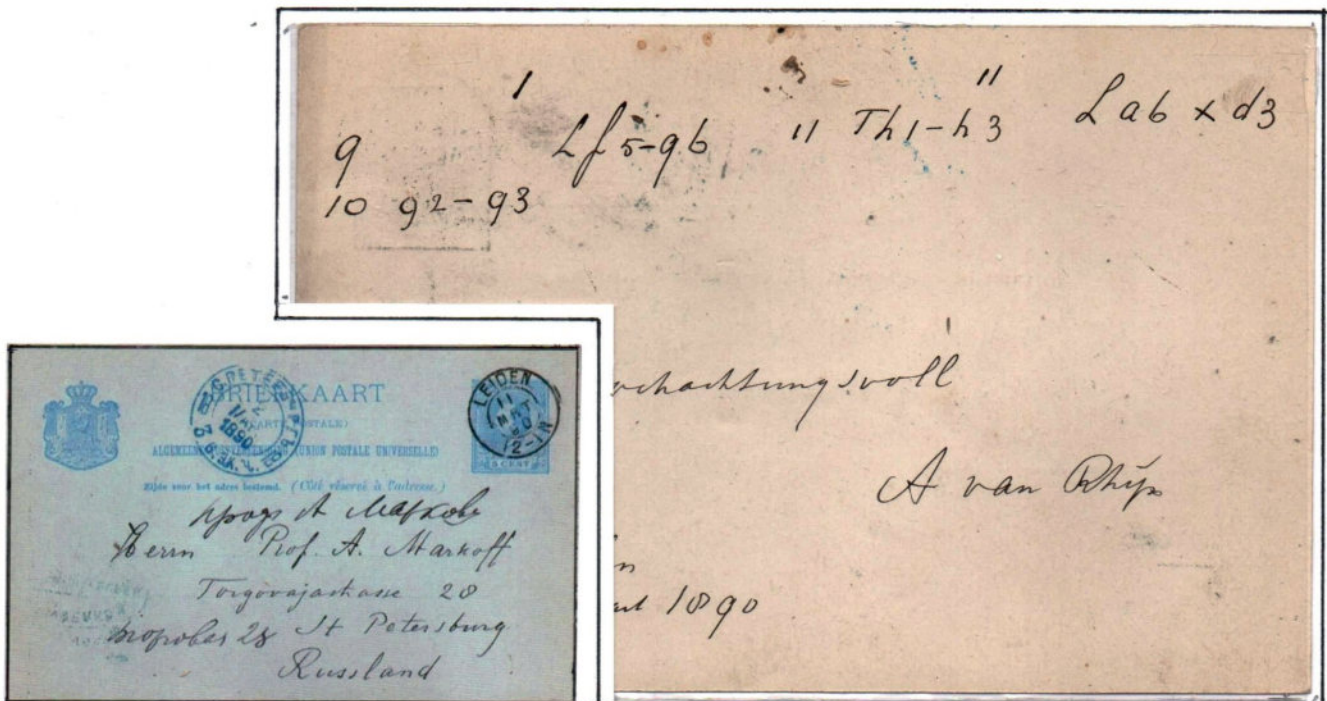 1 11
9 Lf5-g6 " Th1-h3 La6 x d3
10 g2-g3
ochachtungsvoll
A van Rhijn
n
1890
BRIEFKAART
(CARTE POSTALE)
ALGEMEENE POSTVEREENIGING (UNION POSTALE UNIVERSELLE)
Zijde voor het adres bestemd. (Côté réservé à l'adresse.)
5 CENT
LEIDEN
11
MRT
90
12-1N
1890
Herrn Prof. A. Markoff
Torgovajastrasse 28
28 St Petersburg
Russland